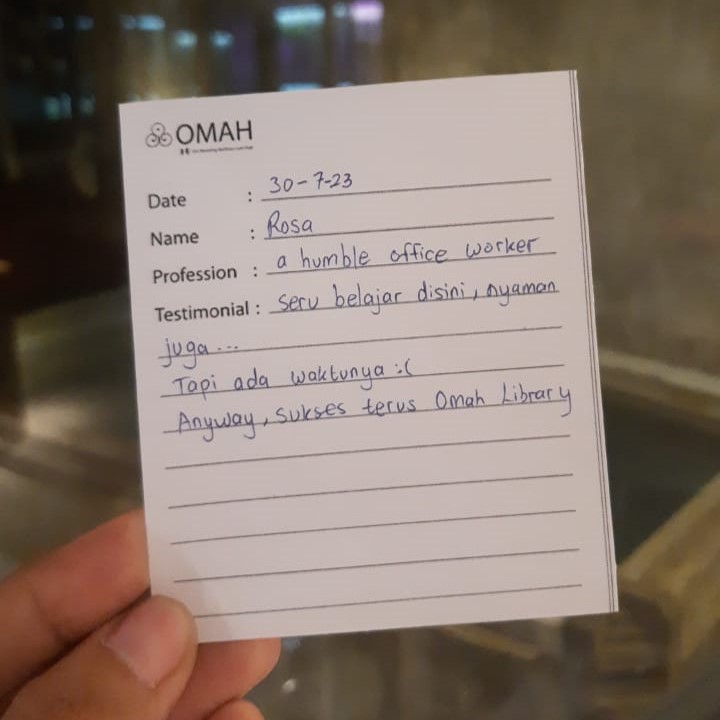 OMAH
Date : 30-7-23
Name : Rosa
Profession : a humble office worker
Testimonial : seru belajar disini, nyaman
juga...
Tapi ada waktunya :(
Anyway, sukses terus Omah Library